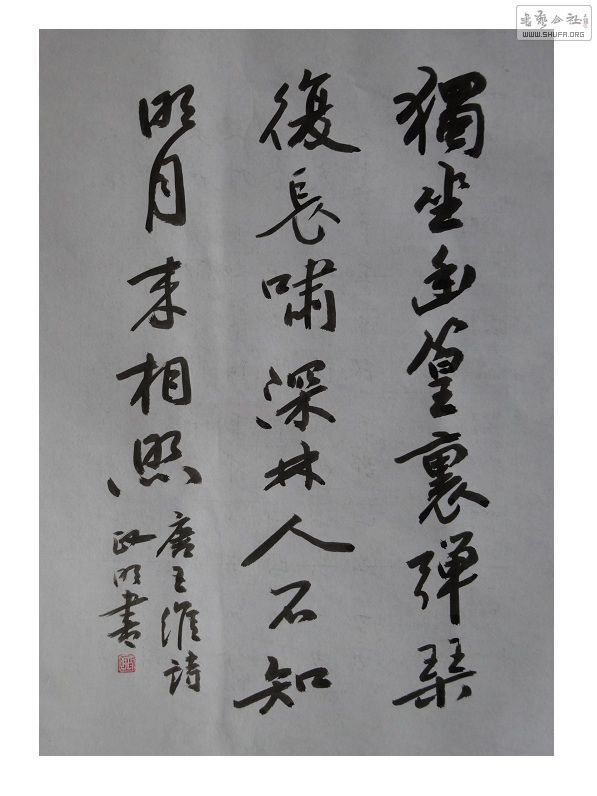 獨坐幽篁裏彈琴
復長嘯深林人不知
明月来相照
唐王維詩
政明書
書藝公社
WWW.SHUFA.ORG